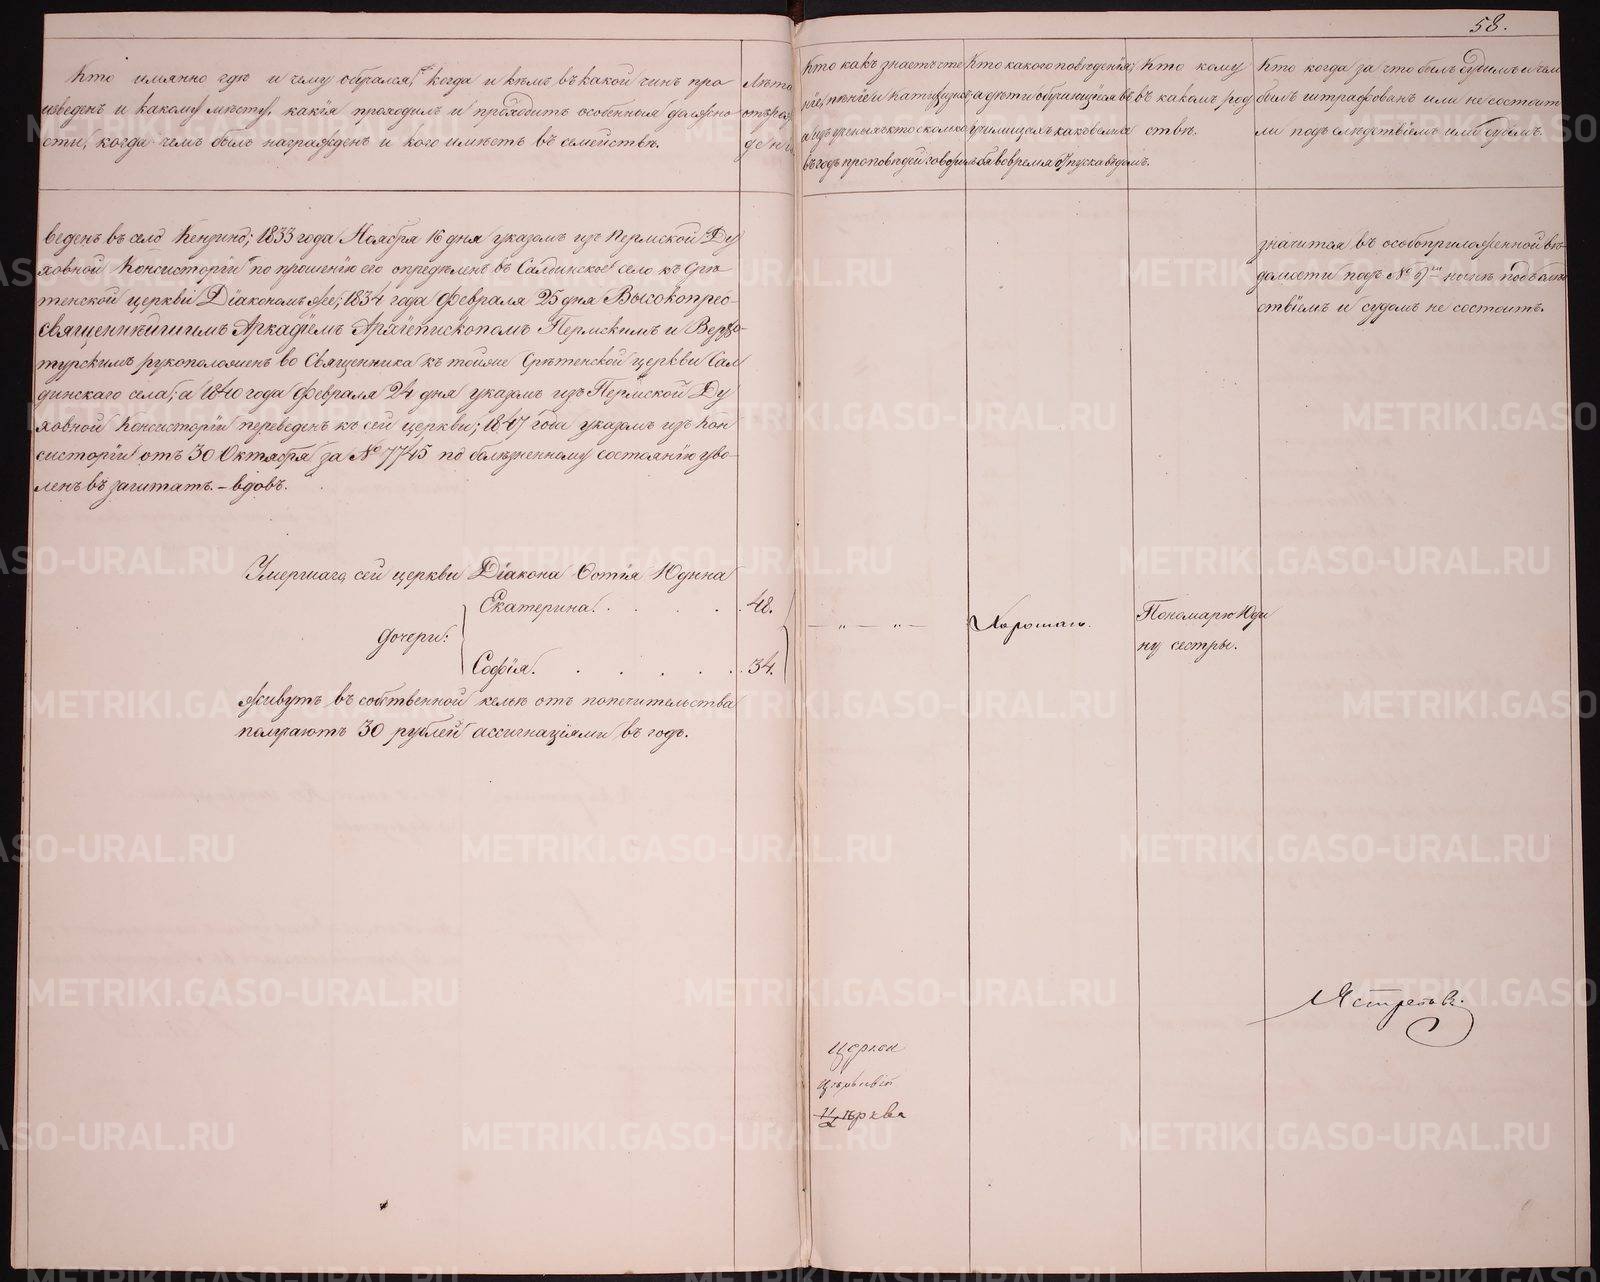 58.
Кто имянно гдѣ и чему обучался, когда и кѣмъ въ какой чинъ про
изведенъ и какому мѣсту, какія проходилъ и проходитъ особенныя должно
сти, когда чемъ былъ награжденъ и кого имѣетъ въ семействѣ.
Лѣта
отъ рож
денія
Кто какъ знаетъ чте
ніе, пѣніе и катихизисъ
а изъ ученыхъ кто сколько
въ годъ проповѣдей говорилъ
Кто какого поведенія,
а дѣти обучающіяся въ
училищахъ каковыми
во время отпуска въ домъ.
Кто кому
въ какомъ род
ствѣ.
Кто когда за что былъ судимъ и чем
былъ штрафованъ или не состоит
ли подъ слѣдствіемъ или судомъ.
веденъ въ село Кензино; 1833 года Ноября 16 дня указомъ изъ Пермской Ду
ховной Консисторіи по прошенію его опредѣленъ въ Салдинское село къ Срѣ
тенской церкви Діакономъ же; 1834 года Февраля 25 дня Высокопрео
священнѣйшимъ Аркадіемъ Архіепископомъ Пермскимъ и Верхо
турскимъ рукоположенъ во Священника къ тойже Срѣтенской церкви Сал
динскаго села; а 1840 года Февраля 24 дня указомъ изъ Пермской Ду
ховной Консисторіи переведенъ къ сей церкви; 1847 года указомъ изъ Кон
систоріи отъ 30 Октября за № 7745 по болѣзненному состоянію уво
ленъ въ заштатъ. – вдовъ.
значится въ особоприложенной вѣ
домости подъ № нынѣ подъ слѣд
ствіемъ и судомъ не состоитъ.
Умершаго сей церкви Діакона Фотія Юдина
дочери:
Екатерина. . . . . 48.
Софія. . . . . . 34.
— „ — „ —
Хорошаго.
Пономарю Юди
ну сестры.
Живутъ въ собственной кельѣ отъ попечительства
получаютъ 30 рублей ассигнаціями въ годъ.
Ястребовъ.
церкви
церква
METRIKI.GASO-URAL.RU